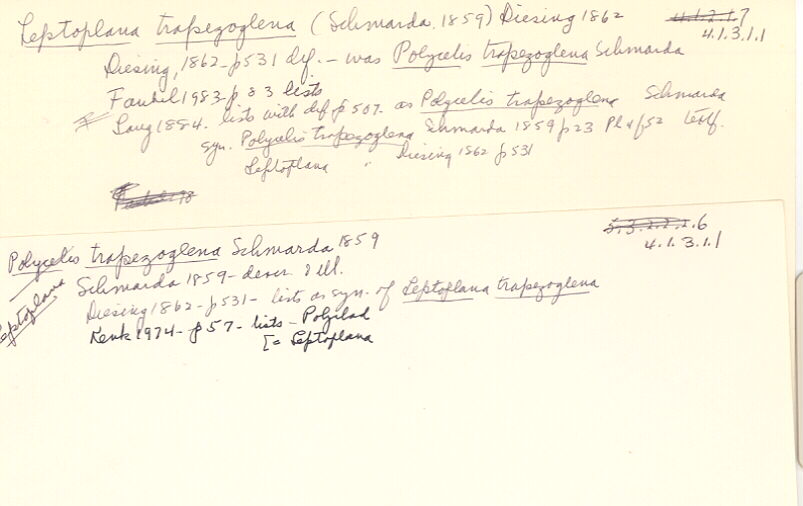 Leptoplana trapezoglena (Schmarda, 1859) Diesing 1862
4.1.2.1.7
4.1.3.1.1
Diesing, 1862-p531 dif. - was Polycelis trapezoglena Schmarda
Faubel 1983-p 83 lists
Lang 1884. lists with dif p 507. as Polycelis trapezoglena Schmarda
syn. Polycelis trapezoglena Schmarda 1859 p23 Pl 4 f 52 textf.
Leptoplana " Diesing 1862 p531
Polycelis trapezoglena Schmarda 1859
5.3.2.2.2.6
4.1.3.1.1
Leptoplana
Schmarda 1859- descr. & ill.
Diesing 1862-p531- lists as syn. of Leptoplana trapezoglena
Kenk 1974- p57- lists - Polyclad
[= Leptoplana